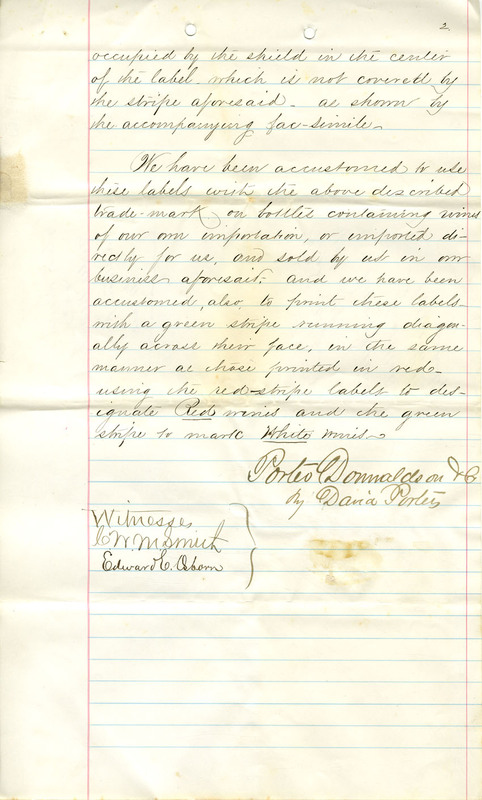 2
occupied by the shield in the center
of the label which is not covered by
the stripe aforesaid - as shown by
the accompanying fac-simile -
We have been accustomed to use
these labels with the above described
trade-mark on bottles containing wines
of our own importation, or imported di-
rectly for us, and sold by us in our
business aforesaid; and we have been
accustomed, also, to print these labels
with a green stripe running diagon-
ally across their face, in the same
manner as those printed in red -
using the red-stripe labels to des-
ignate Red wines and the green
stripe to mark White wines -
Porter Donnaldson & Co
By David Porter
Witnesses
C. W. M. Smith
Edward C. Osborn